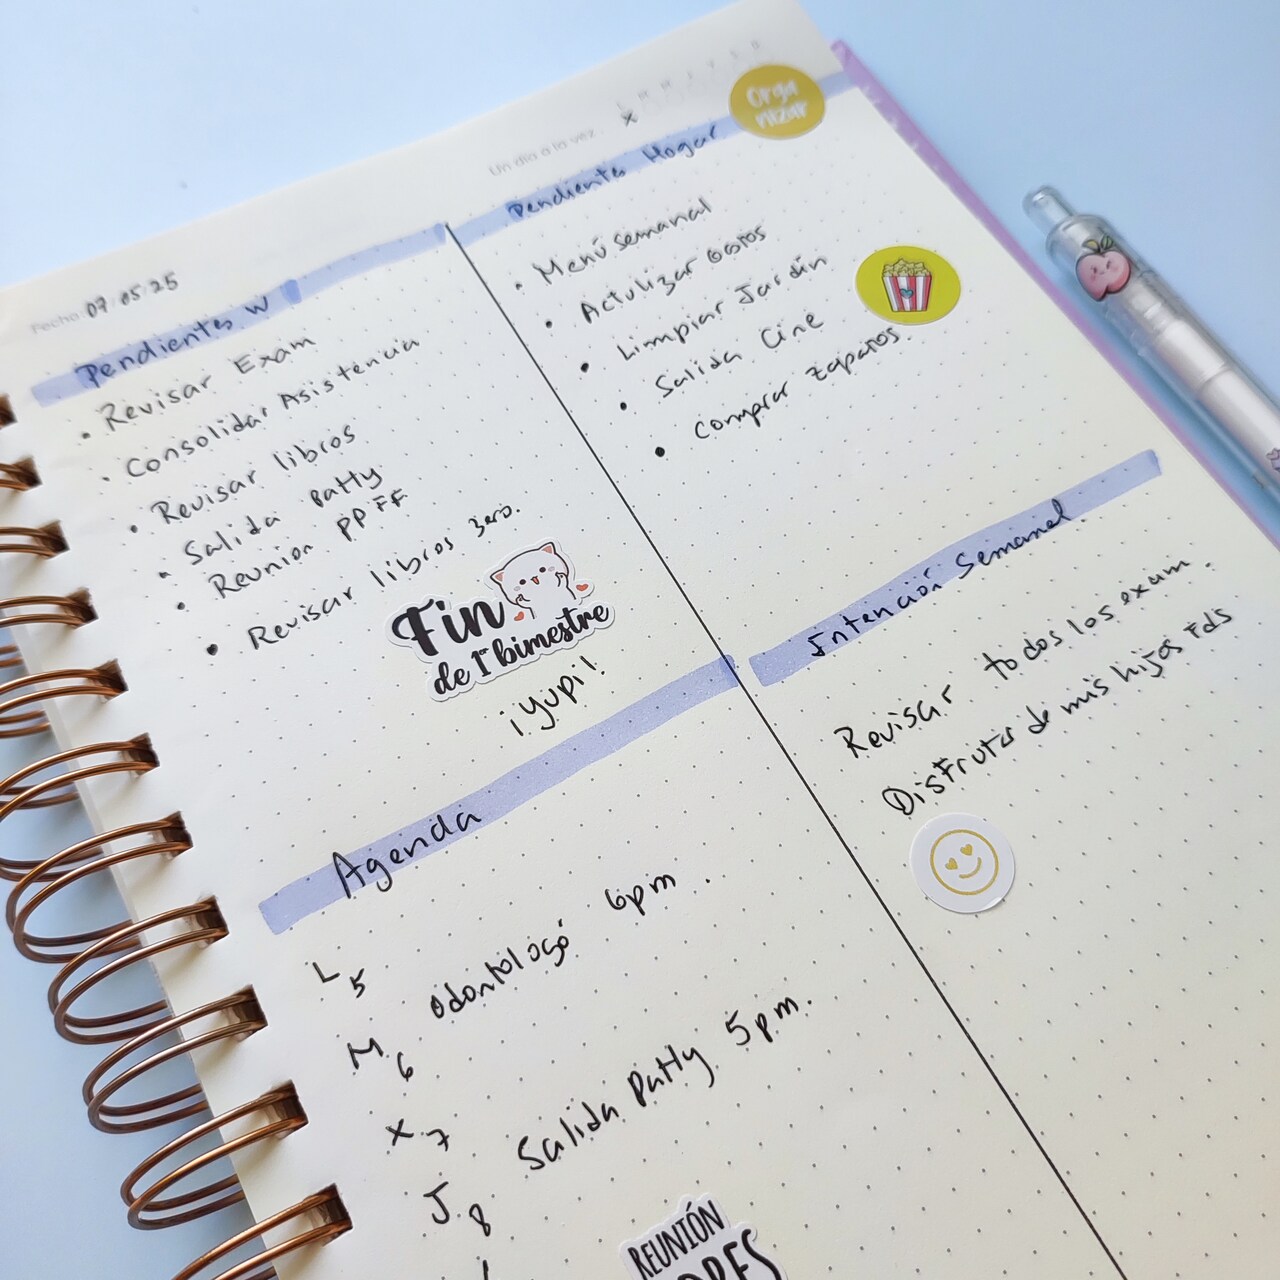 Fecha 07 05 25
Pendientes W
• Revisar Exam
• Consolidar Asistencia
• Revisar libros
• Salida Patty
• Reunion PPFF
• Revisar libros 3ero.
Fin
de 1er bimestre
¡Yupi!
Un día a la vez
L M M J V S D
x
Orga
nizar
Pendientes Hogar
• Menú semanal
• Actulizar
• Limpiar Jardín
• Salida Cine
• Comprar zapatos.
Agenda
L 5
M 6 Odontologó 6pm.
X 7
J 8 Salida Patty 5pm.
REUNIÓN
Intención Semanal
Revisar todos los exam.
Disfrutar de mis hijos Fds